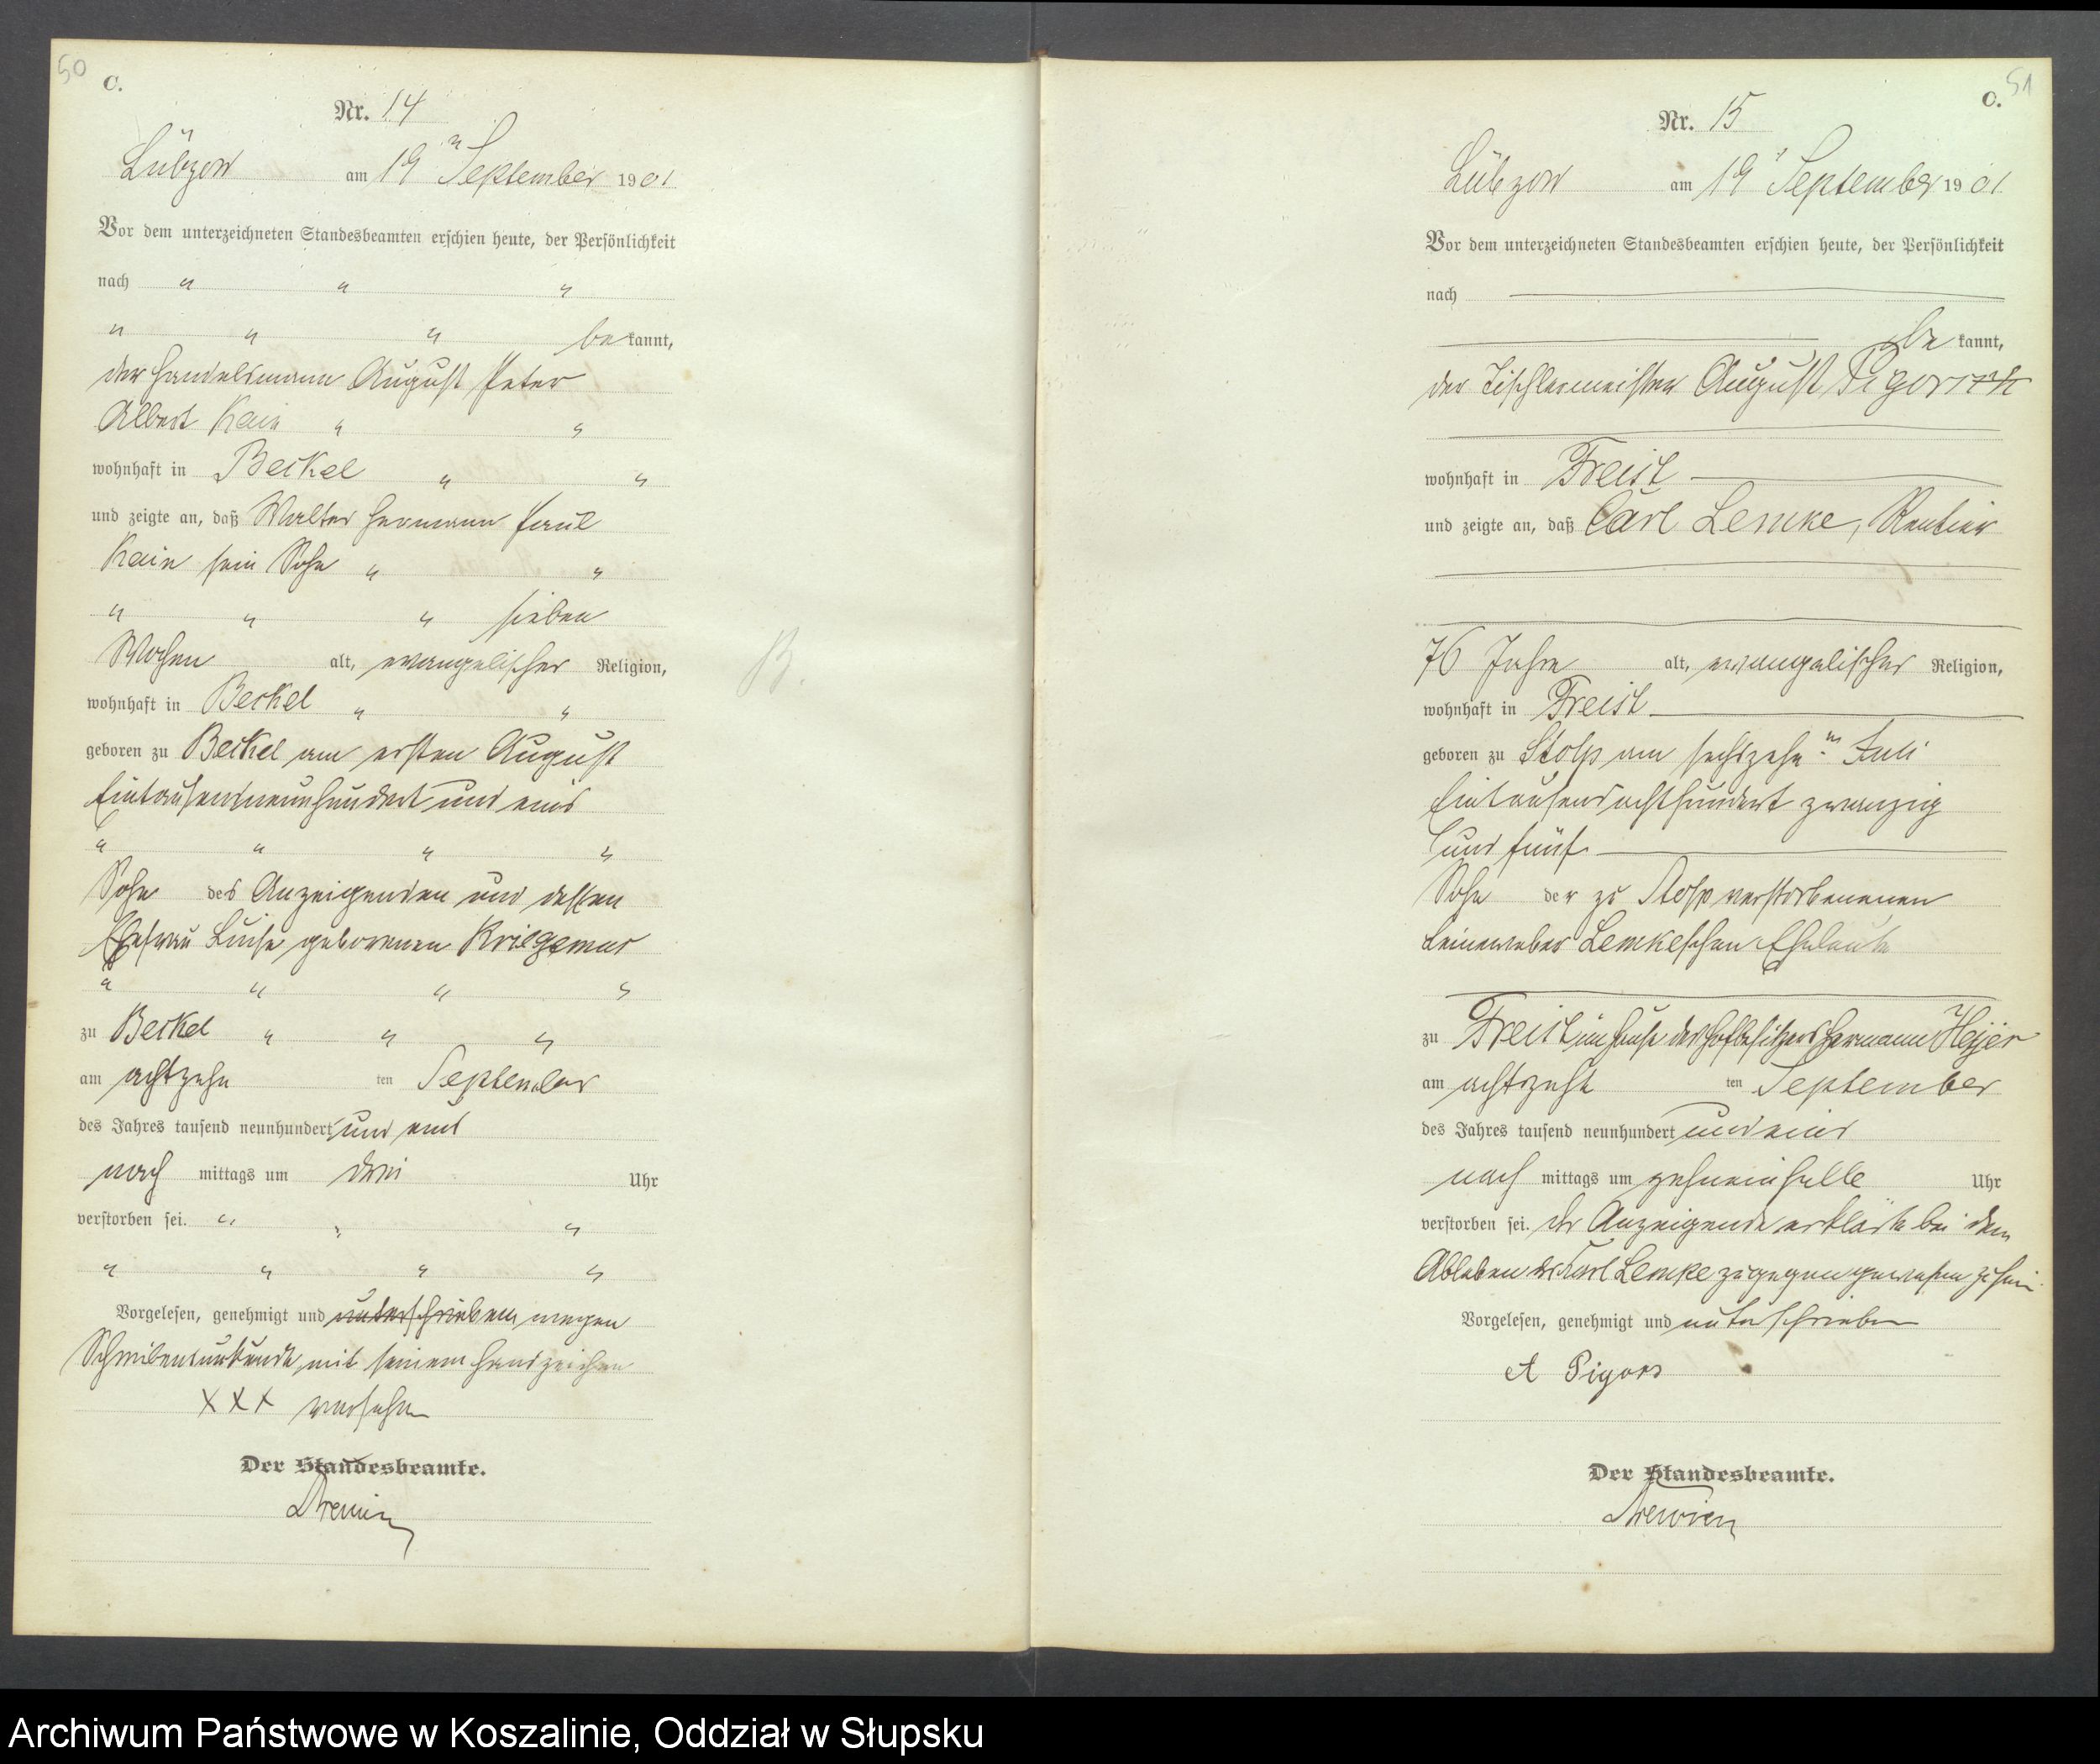 50
C.
Nr. 14
Lübzow am 19ⁿ September 1901
Vor dem unterzeichneten Standesbeamten erschien heute, der Persönlichkeit
nach " " "
" " " be kannt,
der Handelsmann August Peter
Albert Kain " "
wohnhaft in Beckel " "
und zeigte an, daß Walter Hermann Paul
Kain sein Sohn " "
" " " sieben
Wochen alt, evangelischer Religion,
wohnhaft in Beckel " "
geboren zu Beckel am ersten August
Eintausendneunhundert und eins
" " " "
Sohn des Anzeigenden und dessen
Ehefrau Luise geborenen
" " " "
zu Beckel " " "
am achtzehn ten September
des Jahres tausend neunhundert und eins
nach mittags um drei Uhr
verstorben sei. " " "
" " " "
Vorgelesen, genehmigt und unterschrieben wegen
Schreibensunkunde mit seinem Handzeichen
XXX versehen
Der Standesbeamte.
B.
51
C.
Nr. 15
Lübzow am 19 September 1901
Vor dem unterzeichneten Standesbeamten erschien heute, der Persönlichkeit
nach
be kannt,
der Tischlermeister August
wohnhaft in Freist
und zeigte an, daß Carl Lemke, Rentier
76 Jahre alt, evangelischer Religion,
wohnhaft in Freist
geboren zu Stolp am sechszehnten Juli
Eintausendachthundert zwanzig
und fünf
Sohn der zu Stolp verstorbenenen
Leineweber Lemkeschen Eheleute
zu Freist im Hause des Hofbesitzers Hermann
am achtzeht ten September
des Jahres tausend neunhundert und eins
nach mittags um zehneinhalb Uhr
verstorben sei. Der Anzeigende erklärte bei dem
Ableben des Karl Lemke zugegen gewesen zu sein.
Vorgelesen, genehmigt und unterschrieben
A Pigors
Der Standesbeamte.
Archiwum Państwowe w Koszalinie, Oddział w Słupsku